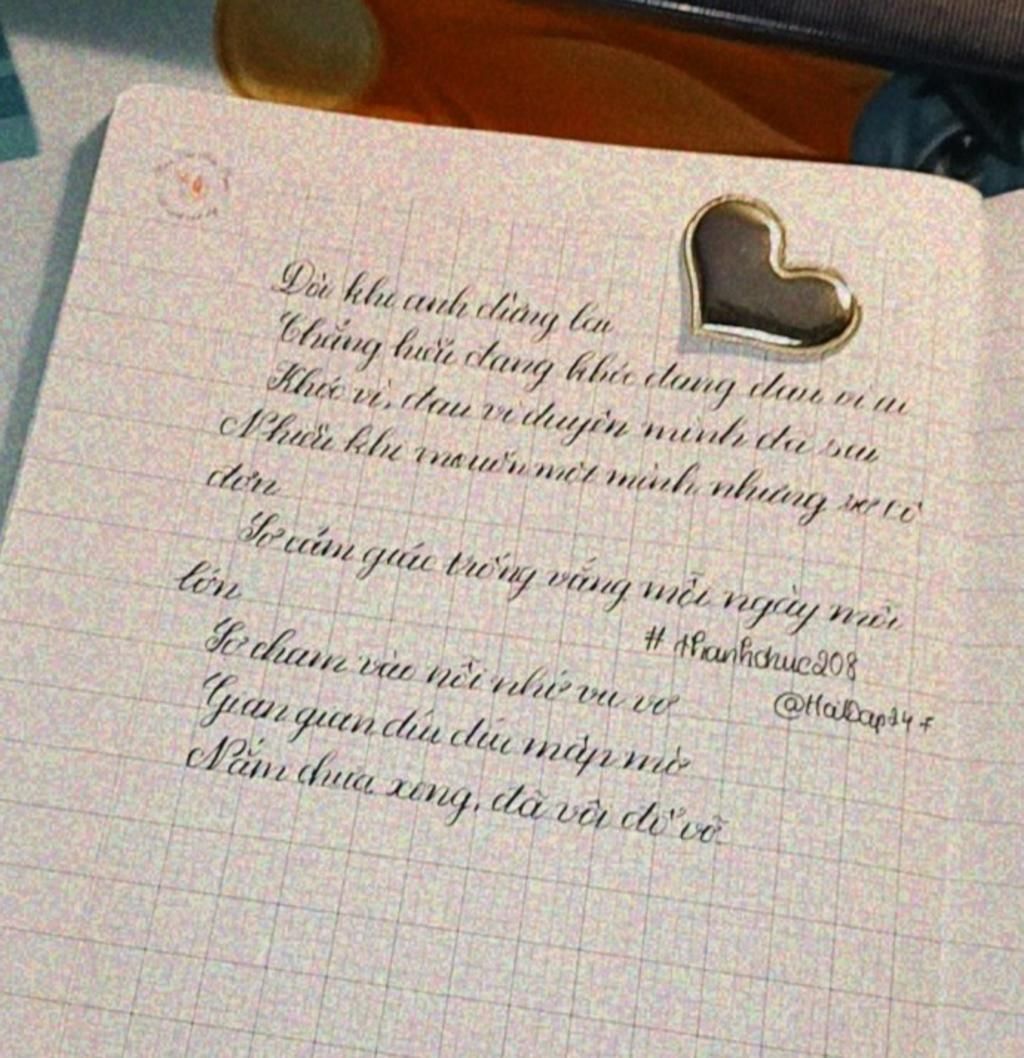 Đôi khi anh dừng lại
Chẳng hiểu đang khóc đang đau vì ai
Khóc vì, đau vì duyên mình đã sai
Nhiều khi muốn một mình nhưng sợ cô
đơn
Sợ cảm giác trống vắng mỗi ngày mỗi
lớn
#thanhchuc208
Sợ chạm vào nỗi nhớ vu vơ
@HaiDap24f
Gian gian díu díu mập mờ
Nắm chưa xong, đã vội đổ vỡ